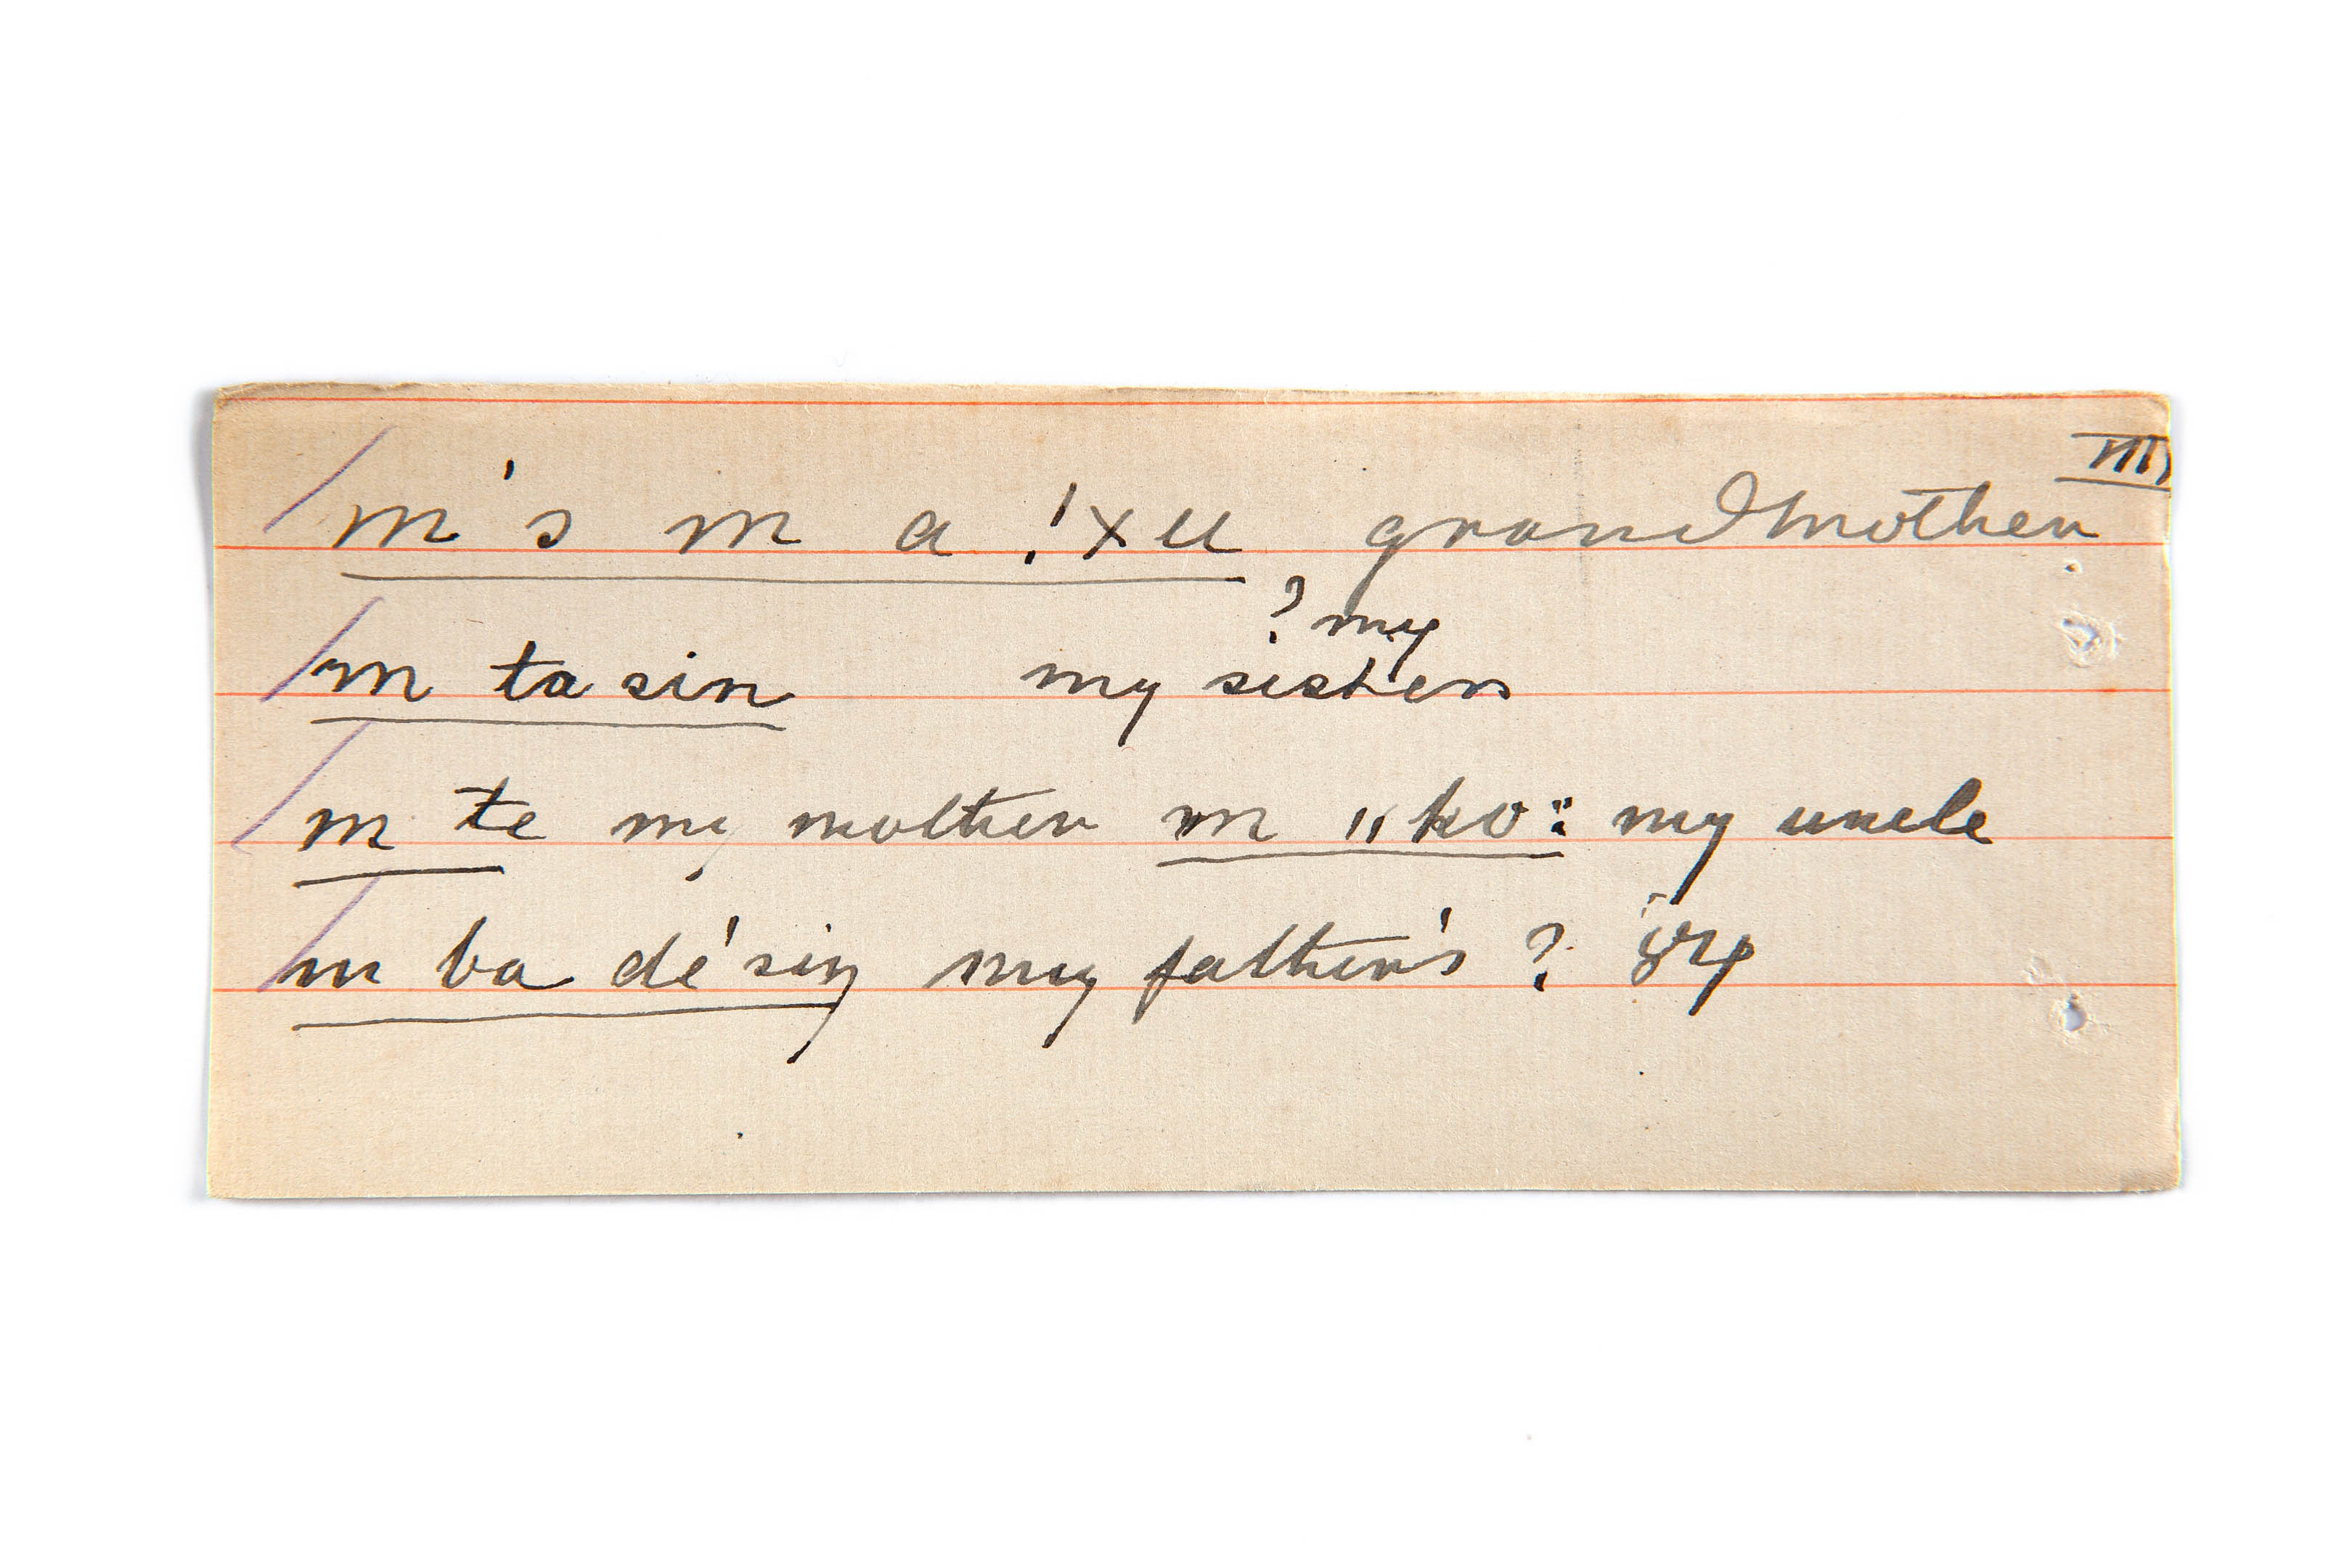 III
m's m a !xu grandmother.
? my
m ta sin my sister
m te my mother m "ko: my uncle
m ba dé'siŋ my father's ? 84